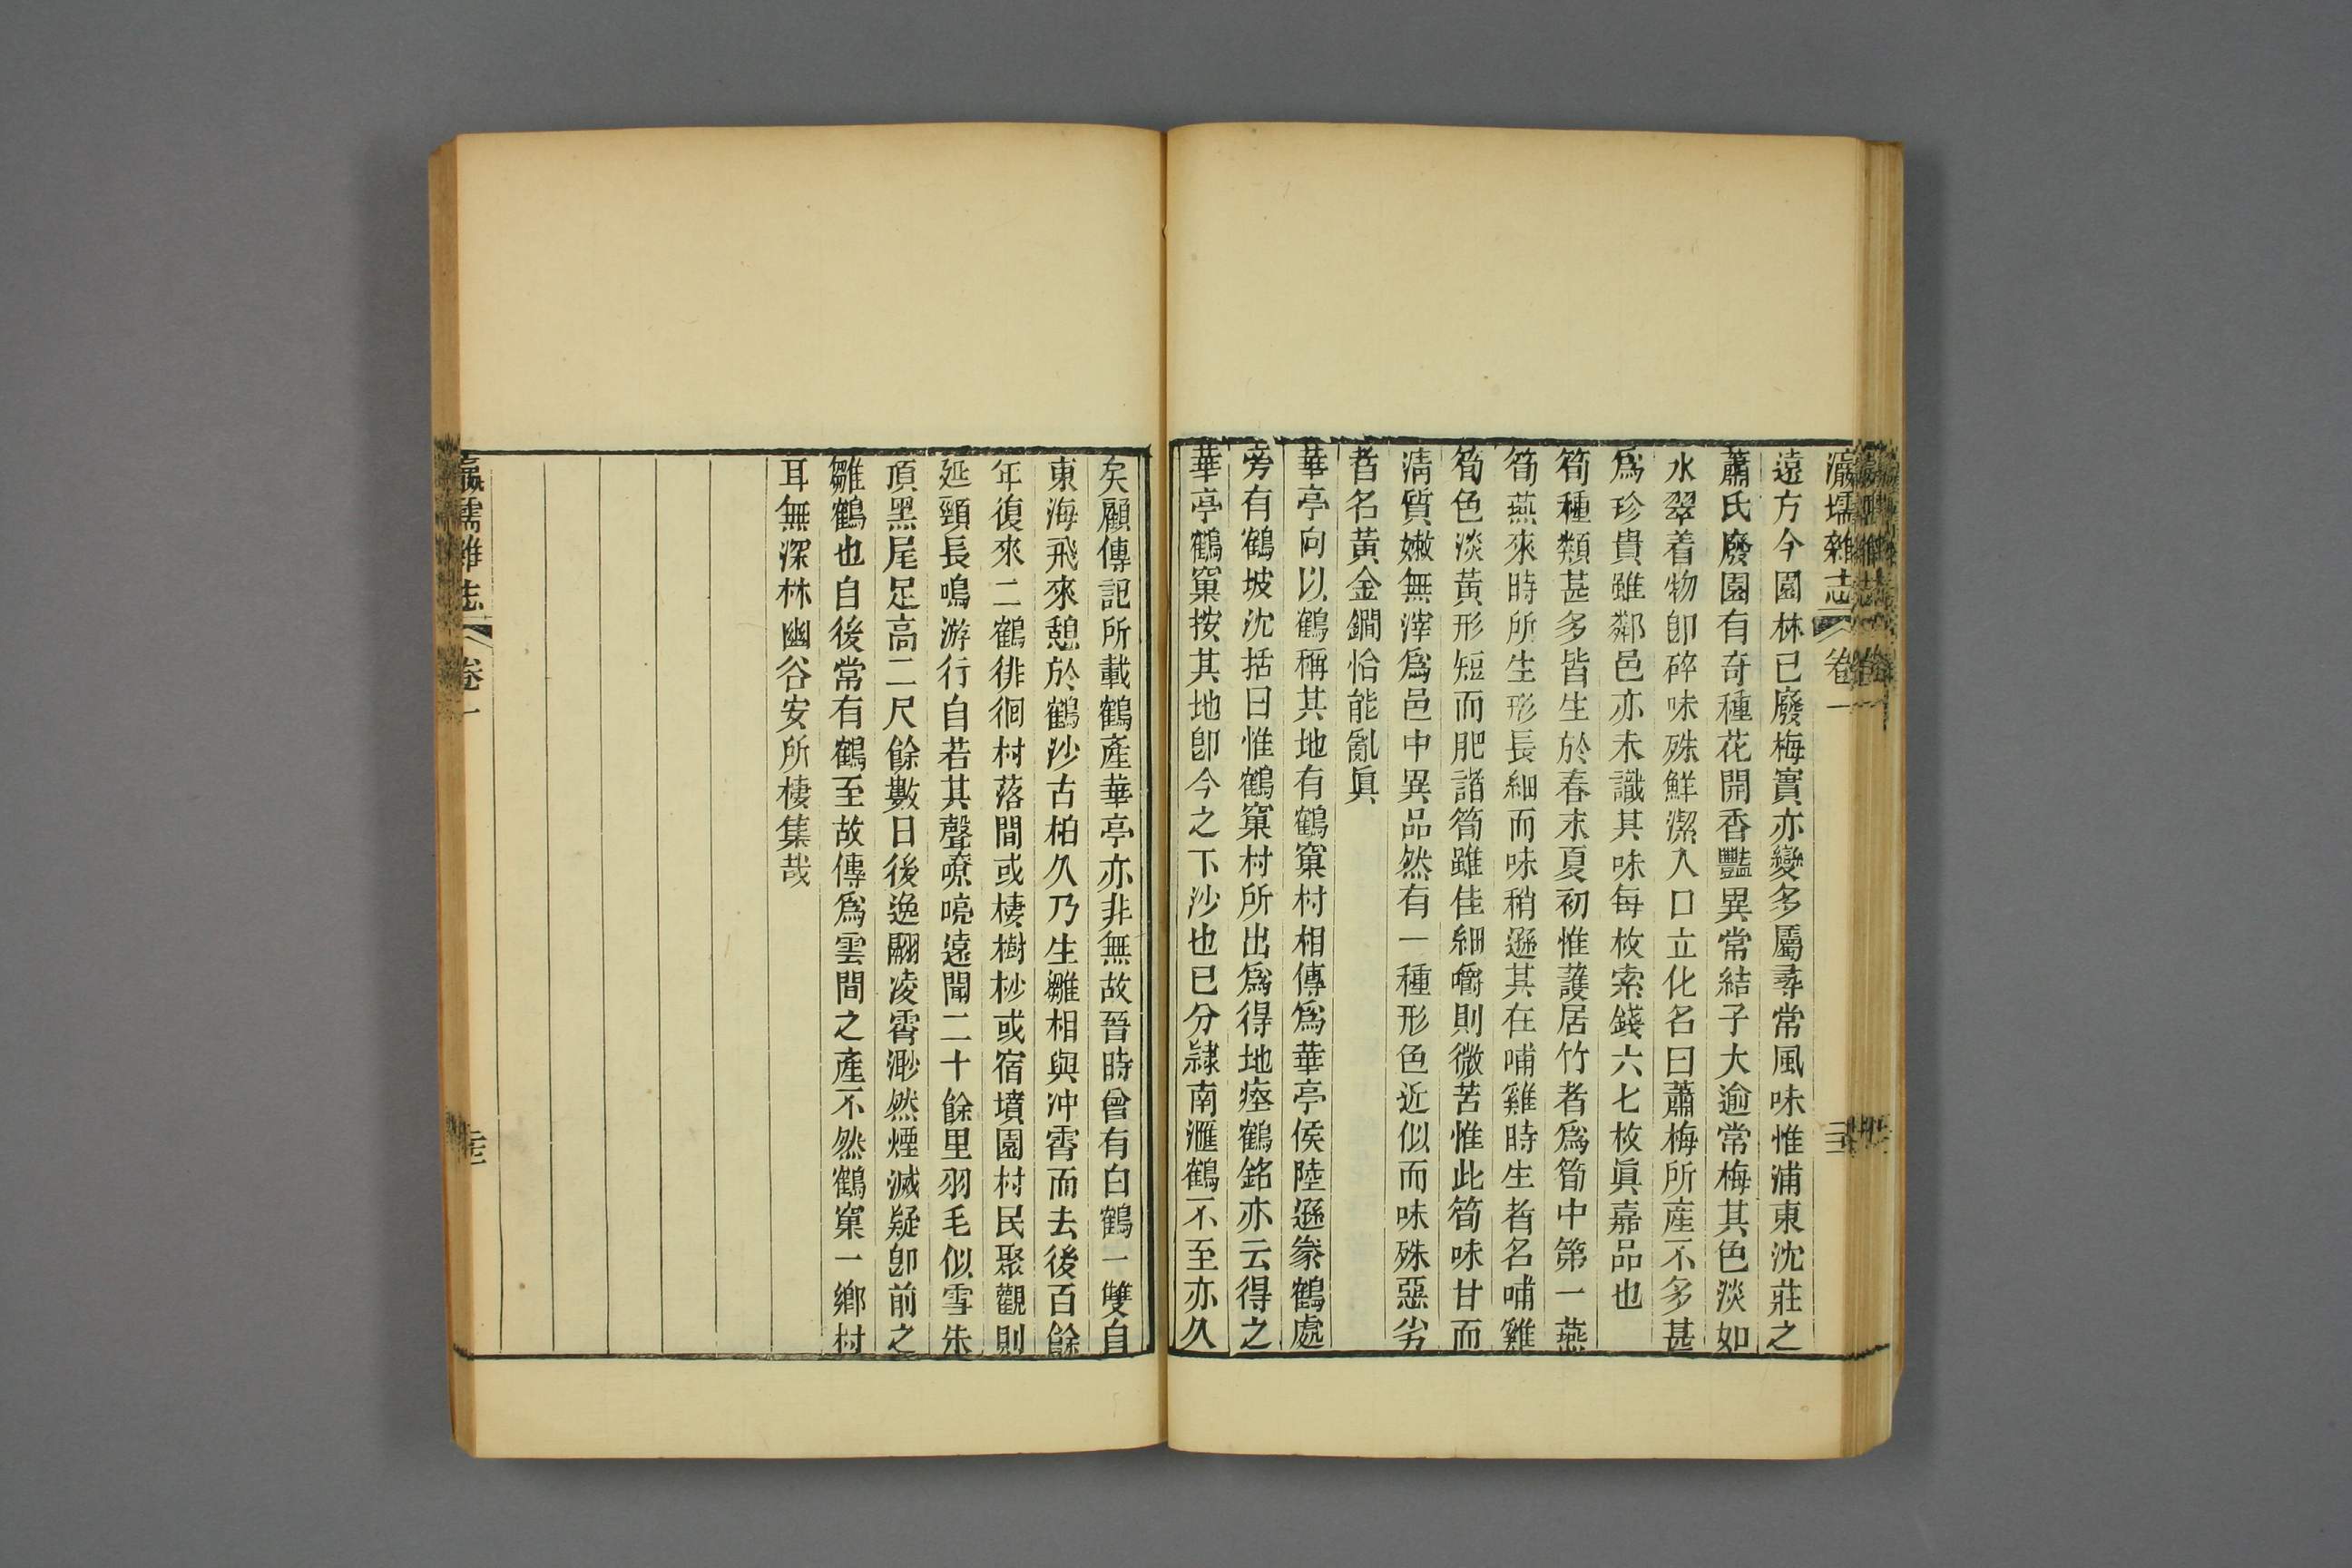 瀛壖雜志 卷一
遠方今園林已廢梅實亦變多屬尋常風味惟浦東沈莊之
蕭氏廢園有奇種花開香豔異常結子大逾常梅其色淡如
水翠着物卽碎味殊鮮潔入口立化名曰蕭梅所產不多甚
爲珍貴雖鄰邑亦未識其味每枚索錢六七枚眞嘉品也
筍種類甚多皆生於春末夏初惟護居竹者爲筍中第一燕
筍燕來時所生形長細而味稍遜其在哺雞時生者名哺雞
筍色淡黃形短而肥諸筍雖佳細嚼則微苦惟此筍味甘而
淸質嫩無滓爲邑中異品然有一種形色近似而味殊惡劣
者名黃金鐗恰能亂眞
華亭向以鶴稱其地有鶴窠村相傳爲華亭侯陸遜豢鶴處
旁有鶴坡沈括曰惟鶴窠村所出爲得地瘞鶴銘亦云得之
華亭鶴窠按其地卽今之下沙也已分隸南滙鶴不至亦久
矣顧傳記所載鶴產華亭亦非無故晉時曾有白鶴一雙自
東海飛來憩於鶴沙古柏久乃生雛相與冲霄而去後百餘
年復來二鶴徘徊村落間或棲樹杪或宿墳園村民聚觀則
延頸長鳴游行自若其聲嘹喨遠聞二十餘里羽毛似雪朱
頂黑尾足高二尺餘數日後逸翮凌霄渺然煙滅疑卽前之
雛鶴也自後常有鶴至故傳爲雲間之產不然鶴窠一鄉村
耳無深林幽谷安所棲集哉
瀛壖雜志 卷一